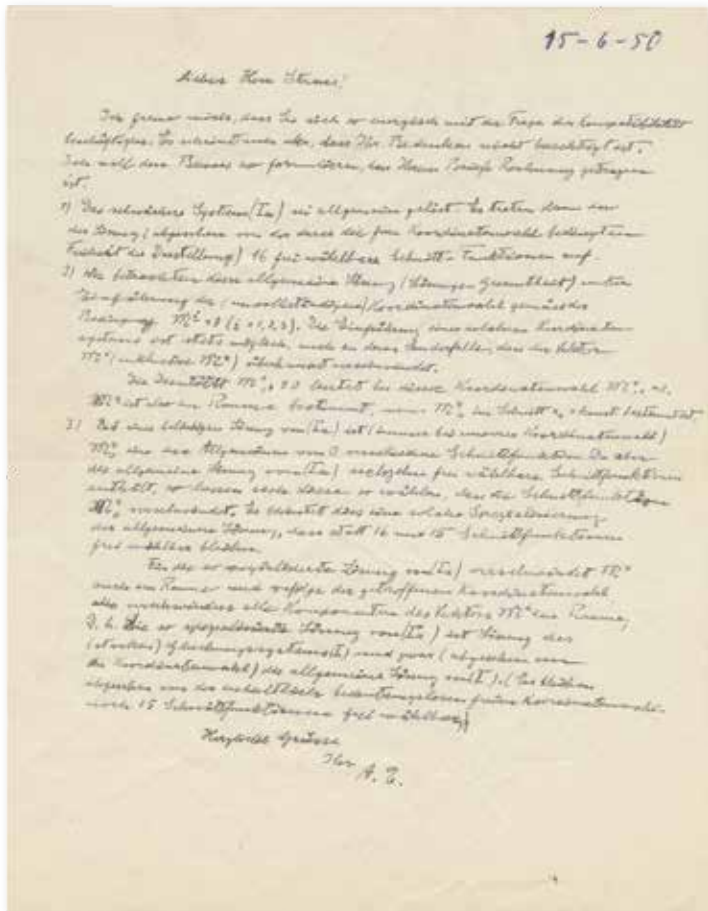 15-6-50
Lieber Herr Straus!
Ich freue mich, dass Sie sich so energisch mit der Frage der Kompatibilität
beschäftigen. Es scheint mir aber, dass Ihr Bedenken nicht berechtigt ist.
Ich will den Beweis so formulieren, dass Ihrem Briefe Rechnung getragen
ist.
1) Das schwächere System (Ia) sei allgemein gelöst. Es treten dann in
der Lösung (abgesehen von der durch die freie Koordinatenwahl bedingten
der Darstellung) 16 frei wählbare Schnitt-Funktionen auf.
2) Wir betrachten diese allgemeine Lösung (Lösungs-Gesamtheit) unter
Einführung der (unvollständigen) Koordinatenwahl gemäss der
Bedingung (i = 1, 2, 3). Die Einführung eines solchen Koordinaten-
systems ist stets möglich, auch in dem Sonderfalle, dass der Vektor
überhaupt verschwindet.
Die Identität lautet bei dieser Koordinatenwahl
ist also im Raume bestimmt, wenn im Schnitt bestimmt ist.
3) Für eine beliebige Lösung von (Ia) ist (immer bei unserer Koordinatenwahl)
eine im Allgemeinen von 0 verschiedene Schnittfunktion. Da aber
die allgemeine Lösung von (Ia) sechzehn frei wählbare Schnittfunktionen
enthält, so lassen sich diese so wählen, dass die Schnittfunktion
verschwindet. Es bedeutet dies eine solche Spezialisierung
der allgemeinen Lösung, dass statt 16 nur 15 Schnittfunktionen
frei wählbar bleiben.
Für die so spezialisierte Lösung von (Ia) verschwindet
auch im Raume und zufolge der getroffenen Koordinatenwahl
also verschwinden alle Komponenten des Vektors im Raume,
d. h. die so spezialisierte Lösung von (Ia) ist Lösung des
(starken) Gleichungssystems (I) und zwar (abgesehen von
der Koordinatenwahl) die allgemeine Lösung von (I). (Es bleiben
abgesehen von der inhaltlich bedeutungslosen freien Koordinatenwahl
noch 15 Schnittfunktionen frei wählbar)
Herzliche Grüsse
Ihr
A. E.